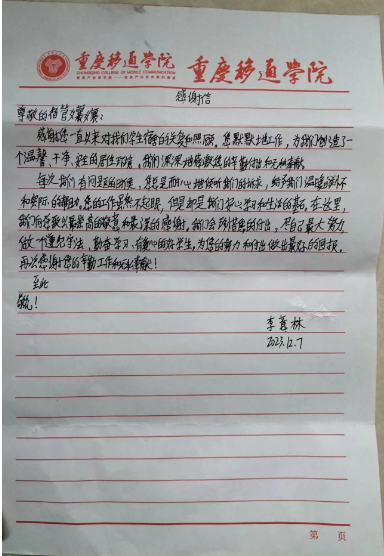 重庆移通学院 重庆移通学院
CHONGQING COLLEGE OF MOBILE COMMUNICATION
感谢信
尊敬的宿管嬢嬢:
感谢您一直以来对我们学生宿舍的关爱和照顾。您默默地工作,为我们创造了一
个温馨、干净、安全的居住环境,我们深深地感激您的辛勤付出和无私奉献
每次我们有问题的时候,您总是耐心地倾听我们的诉求,给予我们温暖的关怀
和实际的帮助。您的工作虽然不起眼,但是却是我们安心学习和生活的基石,在这里,
我们向您致以最崇高的敬意和最深的感谢,我们会珍惜您的付出,尽自己最大努力
做一个遵纪守法,勤奋学习,有爱心的好学生,为您的努力和付出做出最好的回报。
再次感谢您的辛勤工作和无私奉献!
至此
敬礼!
李 林
2023.12.7
第 页